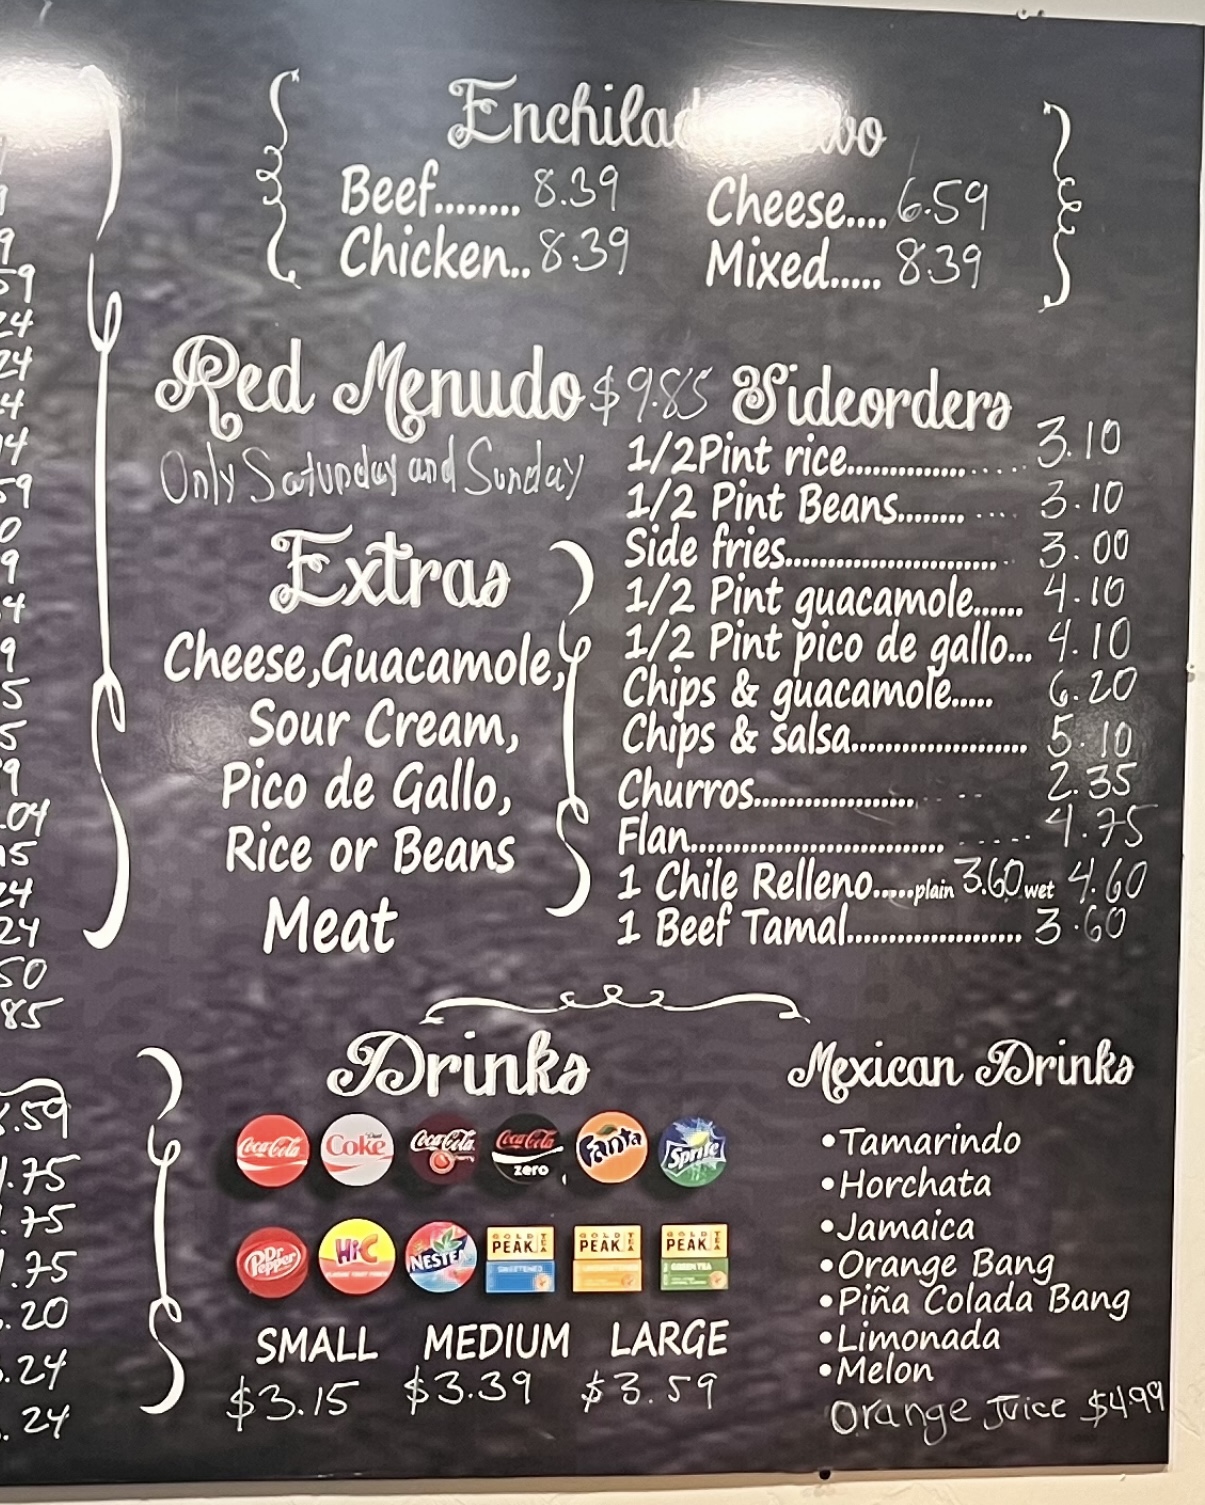 Beef........ 8.39
Chicken.. 8.39
Cheese.... 6.59
Mixed..... 8.39
Red Menudo $9.85
Only Saturday and Sunday
Extras
Cheese,Guacamole,
Sour Cream,
Pico de Gallo,
Rice or Beans
Meat
Sideorders
1/2Pint rice.................... 3.10
1/2 Pint Beans............ 3.10
Side fries............................ 3.00
1/2 Pint guacamole...... 4.10
1/2 Pint pico de gallo... 4.10
Chips & guacamole..... 6.20
Chips & salsa....................... 5.10
Churros...................... 2.35
Flan.................................. 4.75
1 Chile Relleno.....plain 3.60 wet 4.60
1 Beef Tamal....................... 3.60
Drinks
Coca-Cola
Diet Coke
Coca-Cola
Coca-Cola zero
Fanta
Sprite
Dr Pepper
Hi-C
NESTEA
GOLD PEAK TEA
SWEETENED
GOLD PEAK TEA
UNSWEETENED
GOLD PEAK TEA
GREEN TEA
SMALL MEDIUM LARGE
$3.15 $3.39 $3.59
Mexican Drinks
•Tamarindo
•Horchata
•Jamaica
•Orange Bang
•Piña Colada Bang
•Limonada
•Melon
Orange Juice $4.99